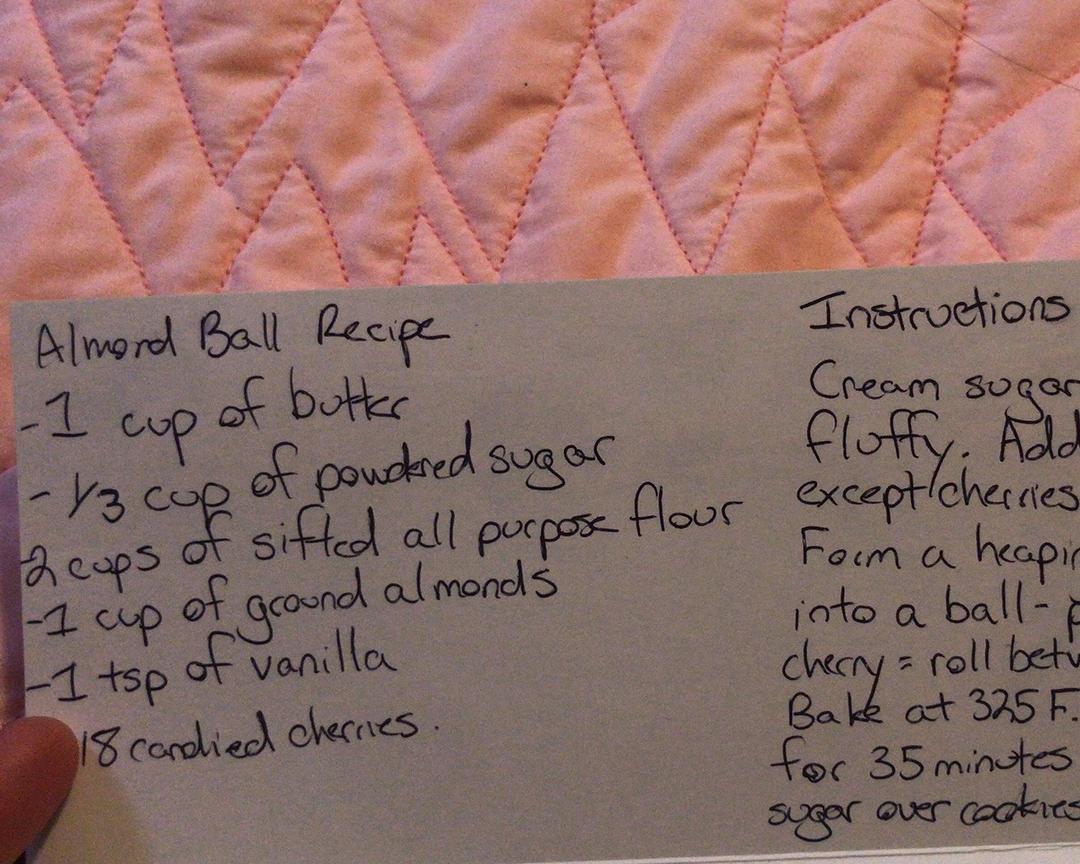 Almond Ball Recipe
-1 cup of butter
- 1/3 cup of powdered sugar
2 cups of sifted all purpose flour
-1 cup of ground almonds
-1 tsp of vanilla
18 candied cherries.
Instructions
Cream sugar
fluffy. Add
except cherries
Form a
into a ball-
cherry = roll
Bake at 325 F.
for 35 minutes
sugar over cookies